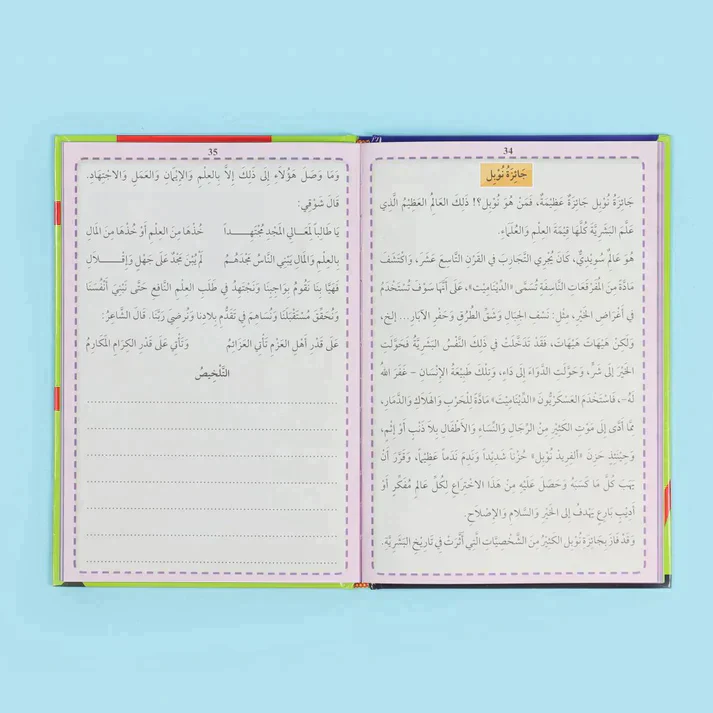 34
جَائِزَةُ نُوْبِل
جَائِزَةُ نُوْبِل جَائِزَةٌ عَظِيْمَةٌ، فَمَنْ هُوَ نُوْبِل؟! ذَلِكَ العَالِمُ العَظِيْمُ الَّذِي
عَلَّمَ البَشَرِيَّةَ كُلَّهَا قِيْمَةَ العِلْمِ وَالعُلَمَاءِ.
هُوَ عَالِمٌ سُوَيْدِيٌّ، كَانَ يُجْرِي التَّجَارِبَ في القَرْنِ التَّاسِعَ عَشَرَ، وَاكْتَشَفَ
مَادَّةً مِنَ المُفَرْقَعَاتِ النَّاسِفَةِ تُسَمَّى «الدِّيْنَامِيْت»، عَلَى أَنَّهَا سَوْفَ تُسْتَخْدَمُ
في أَغْرَاضِ الخَيْرِ، مِثْلِ: نَسْفِ الجِبَالِ وَشَقِّ الطُّرُقِ وَحَفْرِ الآبَارِ... إلخ،
وَلَكِنْ هَيْهَاتَ هَيْهَاتَ، فَقَدْ تَدَخَّلَتْ في ذَلِكَ النَّفْسُ البَشَرِيَّةُ فَحَوَّلَتِ
الخَيْرَ إِلى شَرٍّ، وَحَوَّلَتِ الدَّوَاءَ إِلى دَاءٍ، وَتِلْكَ طَبِيْعَةُ الإِنْسَانِ - غَفَرَ اللهُ
لَهُ-، فَاسْتَخْدَمَ العَسْكَرِيُّونَ «الدِّيْنَامِيْت» مَادَّةً لِلْحَرْبِ وَالهَلَاكِ وَالدَّمَارِ،
مِمَّا أَدَّى إِلى مَوْتِ الكَثِيْرِ مِنَ الرِّجَالِ وَالنِّسَاءِ وَالأَطْفَالِ بِلَا ذَنْبٍ أَوْ إِثْمٍ،
وَحِيْنَئِذٍ حَزِنَ «أَلفِرِيدْ نُوْبِل» حُزْناً شَدِيْداً وَنَدِمَ نَدَماً عَظِيْماً، وَقَرَّرَ أَنْ
يَهَبَ كُلَّ مَا كَسَبَهُ وَحَصَلَ عَلَيْهِ مِنْ هَذَا الاخْتِرَاعِ لِكُلِّ عَالِمٍ مُفَكِّرٍ أَوْ
أَدِيْبٍ بَارِعٍ يَهْدِفُ إِلى الخَيْرِ وَالسَّلَامِ وَالإِصْلَاحِ.
وَقَدْ فَازَ بِجَائِزَةِ نُوْبِل الكَثِيْرُ مِنَ الشَّخْصِيَّاتِ الَّتِي أَثَّرَتْ في تَارِيْخِ البَشَرِيَّةِ.
35
وَمَا وَصَلَ هَؤُلَاءِ إِلى ذَلِكَ إِلاَّ بِالعِلْمِ وَالإِيْمَانِ وَالعَمَلِ وَالاجْتِهَادِ.
قَالَ شَوْقِي:
يَا طَالِباً لِمَعَالي المَجْدِ مُجْتَهِداً خُذْهَا مِنَ العِلْمِ أَوْ خُذْهَا مِنَ المَالِ
بِالعِلْمِ وَالمَالِ يَبْنِي النَّاسُ مَجْدَهُمُ لَمْ يُبْنَ مَجْدٌ عَلَى جَهْلٍ وَإِقْلَالِ
فَهَيَّا بِنا نَقُومُ بِوَاجِبِنا وَنَجْتَهِدُ في طَلَبِ العِلْمِ النَّافِعِ حَتَّى نَبْنِيَ أَنْفُسَنَا
وَنُحَقِّقَ مُسْتَقْبَلَنَا وَنُسَاهِمَ في تَقَدُّمِ بِلَادِنا وَنُرضِيَ رَبَّنا. قَالَ الشَّاعِرُ:
عَلَى قَدْرِ أَهْلِ العَزْمِ تَأْتِي العَزَائِمُ وَتَأْتِي عَلَى قَدْرِ الكِرَامِ المَكَارِمُ
التَّلْخِيصُ